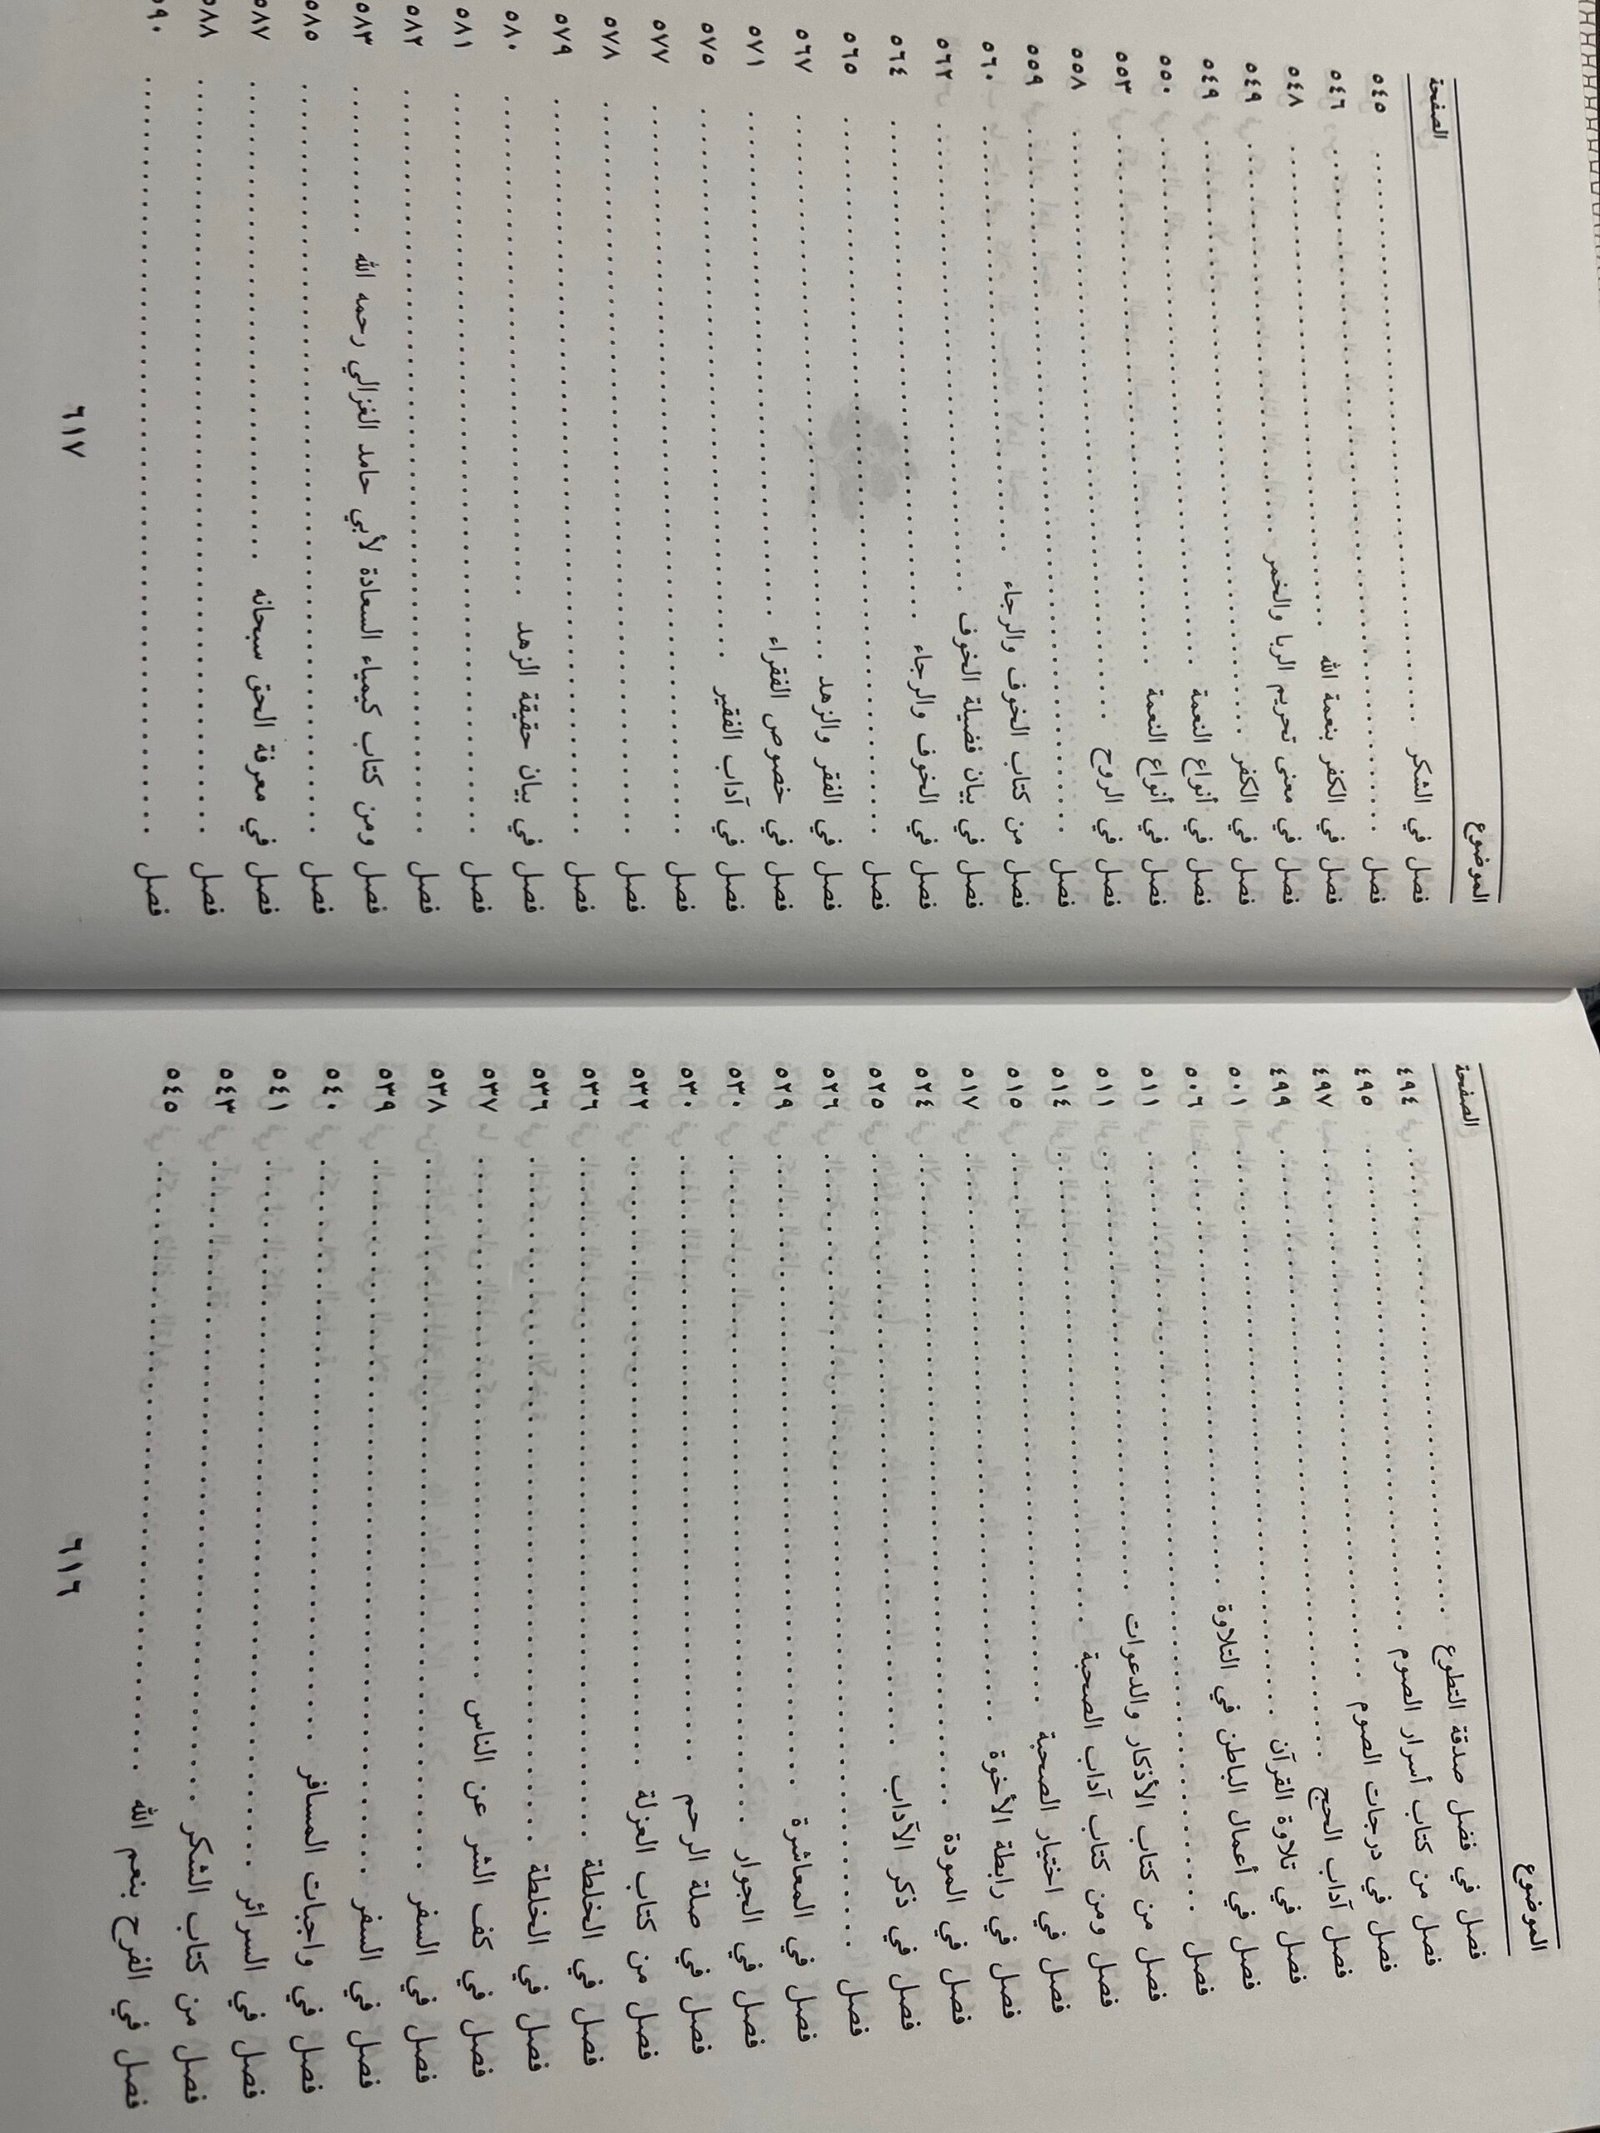 الموضوع الصفحة
فصل في فضل صدقة التطوع ........ ٤٩٤
فصل من كتاب أسرار الصوم ........ ٤٩٥
فصل في درجات الصوم ........ ٤٩٧
فصل آداب الحج ........ ٤٩٩
فصل في تلاوة القرآن ........ ٥٠١
فصل في أعمال الباطن في التلاوة ........ ٥٠٦
فصل ........ ٥١١
فصل من كتاب الأذكار والدعوات ........ ٥١١
فصل ومن كتاب آداب الصحبة ........ ٥١٤
فصل في اختيار الصحبة ........ ٥١٥
فصل في رابطة الأخوة ........ ٥١٧
فصل في المودة ........ ٥٢٤
فصل في ذكر الآداب ........ ٥٢٥
فصل ........ ٥٢٦
فصل في المعاشرة ........ ٥٢٩
فصل في الجوار ........ ٥٣٠
فصل في صلة الرحم ........ ٥٣٠
فصل من كتاب العزلة ........ ٥٣٢
فصل في الخلطة ........ ٥٣٦
فصل في الخلطة ........ ٥٣٦
فصل في كف الشر عن الناس ........ ٥٣٧
فصل في السفر ........ ٥٣٨
فصل في السفر ........ ٥٣٩
فصل في واجبات المسافر ........ ٥٤٠
فصل في السرائر ........ ٥٤١
فصل من كتاب الشكر ........ ٥٤٣
فصل في الفرح بنعم الله ........ ٥٤٥
٦١٦
الموضوع الصفحة
فصل في الشكر ........ ٥٤٥
فصل ........ ٥٤٦
فصل في الكفر بنعمة الله ........ ٥٤٨
فصل في معنى تحريم الربا والخمر ........ ٥٤٩
فصل في الكفر ........ ٥٤٩
فصل في أنواع النعمة ........ ٥٥٠
فصل في أنواع النعمة ........ ٥٥٣
فصل في الروح ........ ٥٥٨
فصل ........ ٥٥٩
فصل من كتاب الخوف والرجاء ........ ٥٦٠
فصل في بيان فضيلة الخوف ........ ٥٦٢
فصل في الخوف والرجاء ........ ٥٦٤
فصل ........ ٥٦٥
فصل في الفقر والزهد ........ ٥٦٧
فصل في خصوص الفقراء ........ ٥٧١
فصل في آداب الفقير ........ ٥٧٥
فصل ........ ٥٧٧
فصل ........ ٥٧٨
فصل ........ ٥٧٩
فصل في بيان حقيقة الزهد ........ ٥٨٠
فصل ........ ٥٨١
فصل ........ ٥٨٢
فصل ومن كتاب كيمياء السعادة لأبي حامد الغزالي رحمه الله ........ ٥٨٣
فصل ........ ٥٨٥
فصل في معرفة الحق سبحانه ........ ٥٨٧
فصل ........ ٥٨٨
فصل ........ ٥٩٠
٦١٧